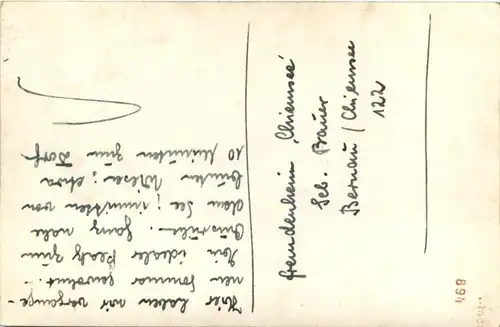 Hier haben wir vergange-
nen Sommer gewohnt. -
Ein idealer Platz zum
Ganz nahe
dem See, inmitten von
bunten Wiesen; etwa
10 Minuten zum Dorf.
Fremdenheim „Chiemsee“
Seb. Bauer
Bernau / Chiemsee
122
894